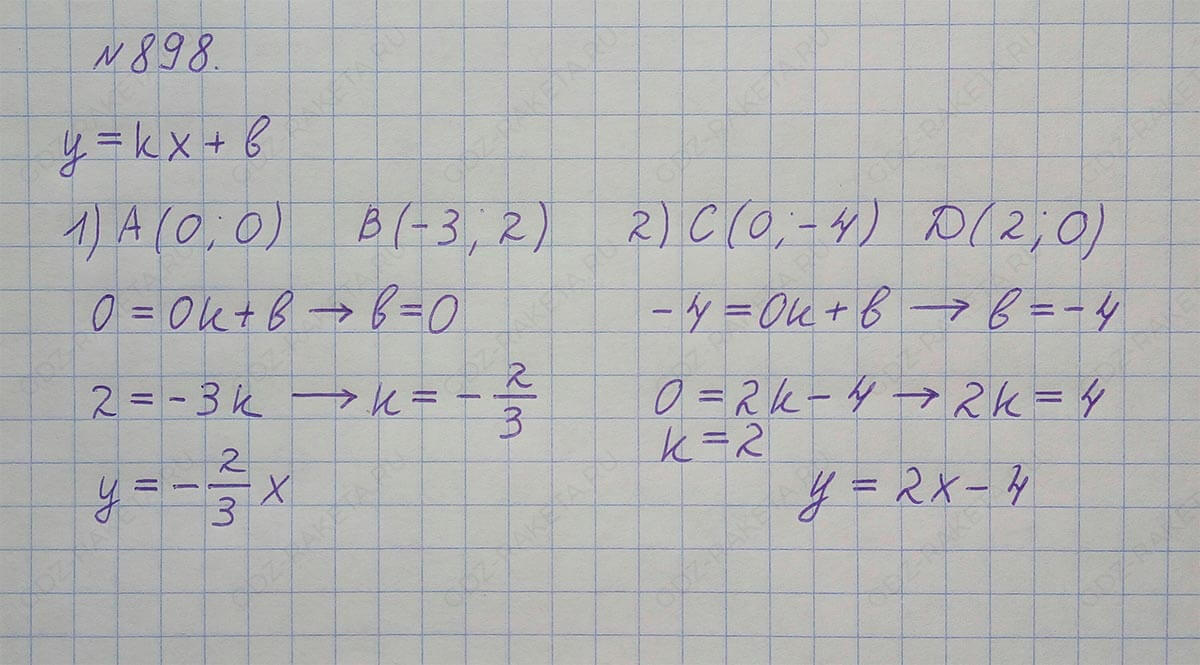 №898.
y = kx + b
1) A(0; 0) B(-3; 2) 2) C(0; -4) D(2; 0)
0 = 0k + b → b = 0 -4 = 0k + b → b = -4
2 = -3k → k = -2/3 0 = 2k - 4 → 2k = 4
k = 2
y = -2/3 x y = 2x - 4
GDZ-RAKETA.RU